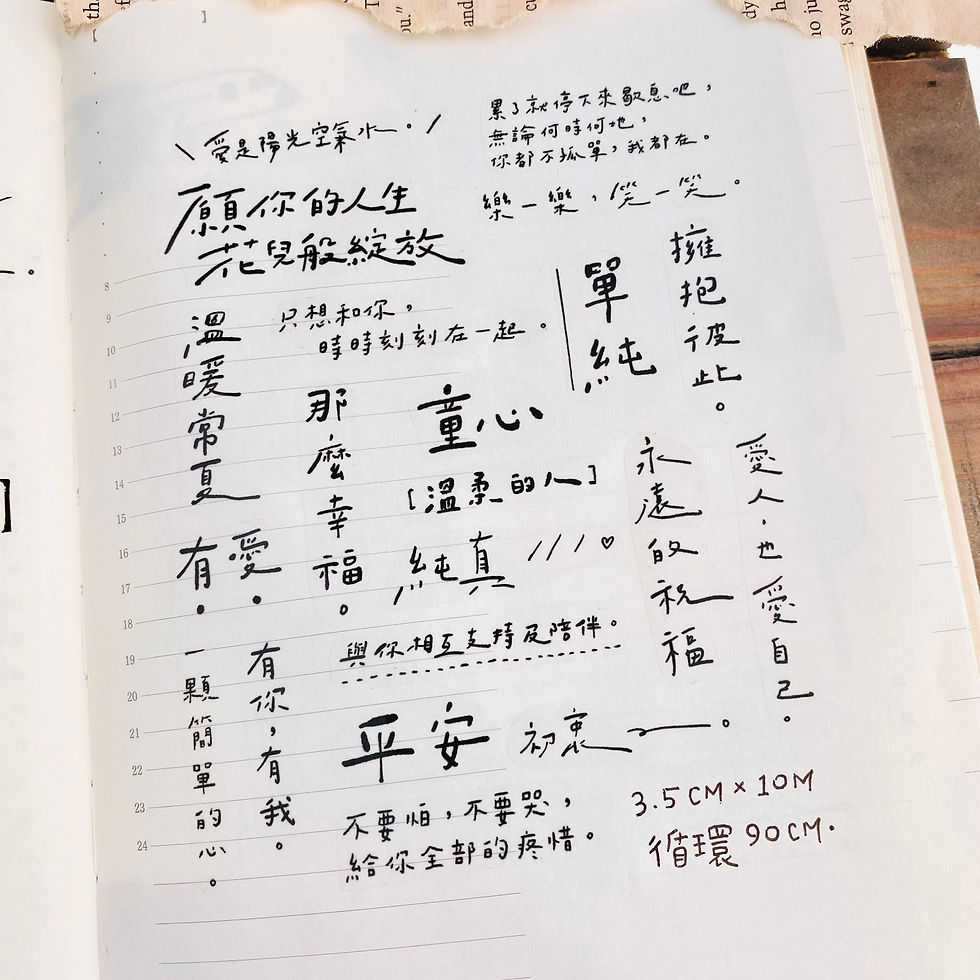 \ 愛是陽光空氣水。/
願你的人生
花兒般綻放
累了就停下來歇息吧，
無論何時何地，
你都不孤單，我都在。
樂一樂，笑一笑。
只想和你，
時時刻刻在一起。
單純
擁抱彼此。
溫暖常夏
那麼幸福。
童心
[溫柔的人]
純真 ///♡
永遠的祝福
愛人·也愛自己。
愛·
有·
與你相互支持及陪伴。
有你，有我。
一顆簡單的心。
平安
初衷——。
不要怕，不要哭，
給你全部的疼惜。
3.5CM×10M
循環90CM.
8
9
10
11
12
13
14
15
16
17
18
19
20
21
22
23
24